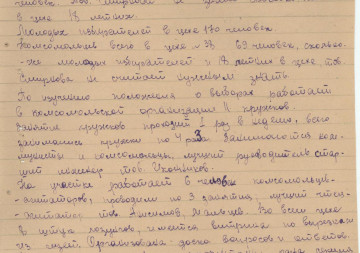 в цехе 18 летних.
Молодых избирателей в цехе 170 человек
Комсомольцев всего в цехе 69 человек, сколько
-же молодых избирателей и 18 летних в цехе тов.
Смирнова не считает нужным знать.
По изучению положения о выборах работает
в комсомольской организации 11 кружков.
Занятие кружков проходит 1 раз в неделю, всего
занимались кружки по 4 раза. Занимаются ком
мунисты и комсомольцы, лучший руководитель стар
ший инженер тов.
На участке работает 6 человек комсомольцев-
-агитаторов, проводили по 3 занятия, лучший чтец-
-агитатор тов Анисимов, Мальцев. Во всем цехе
4 штук лозунгов, имеется витрина по выборам
из лицей Организована доска вопросов и ответов